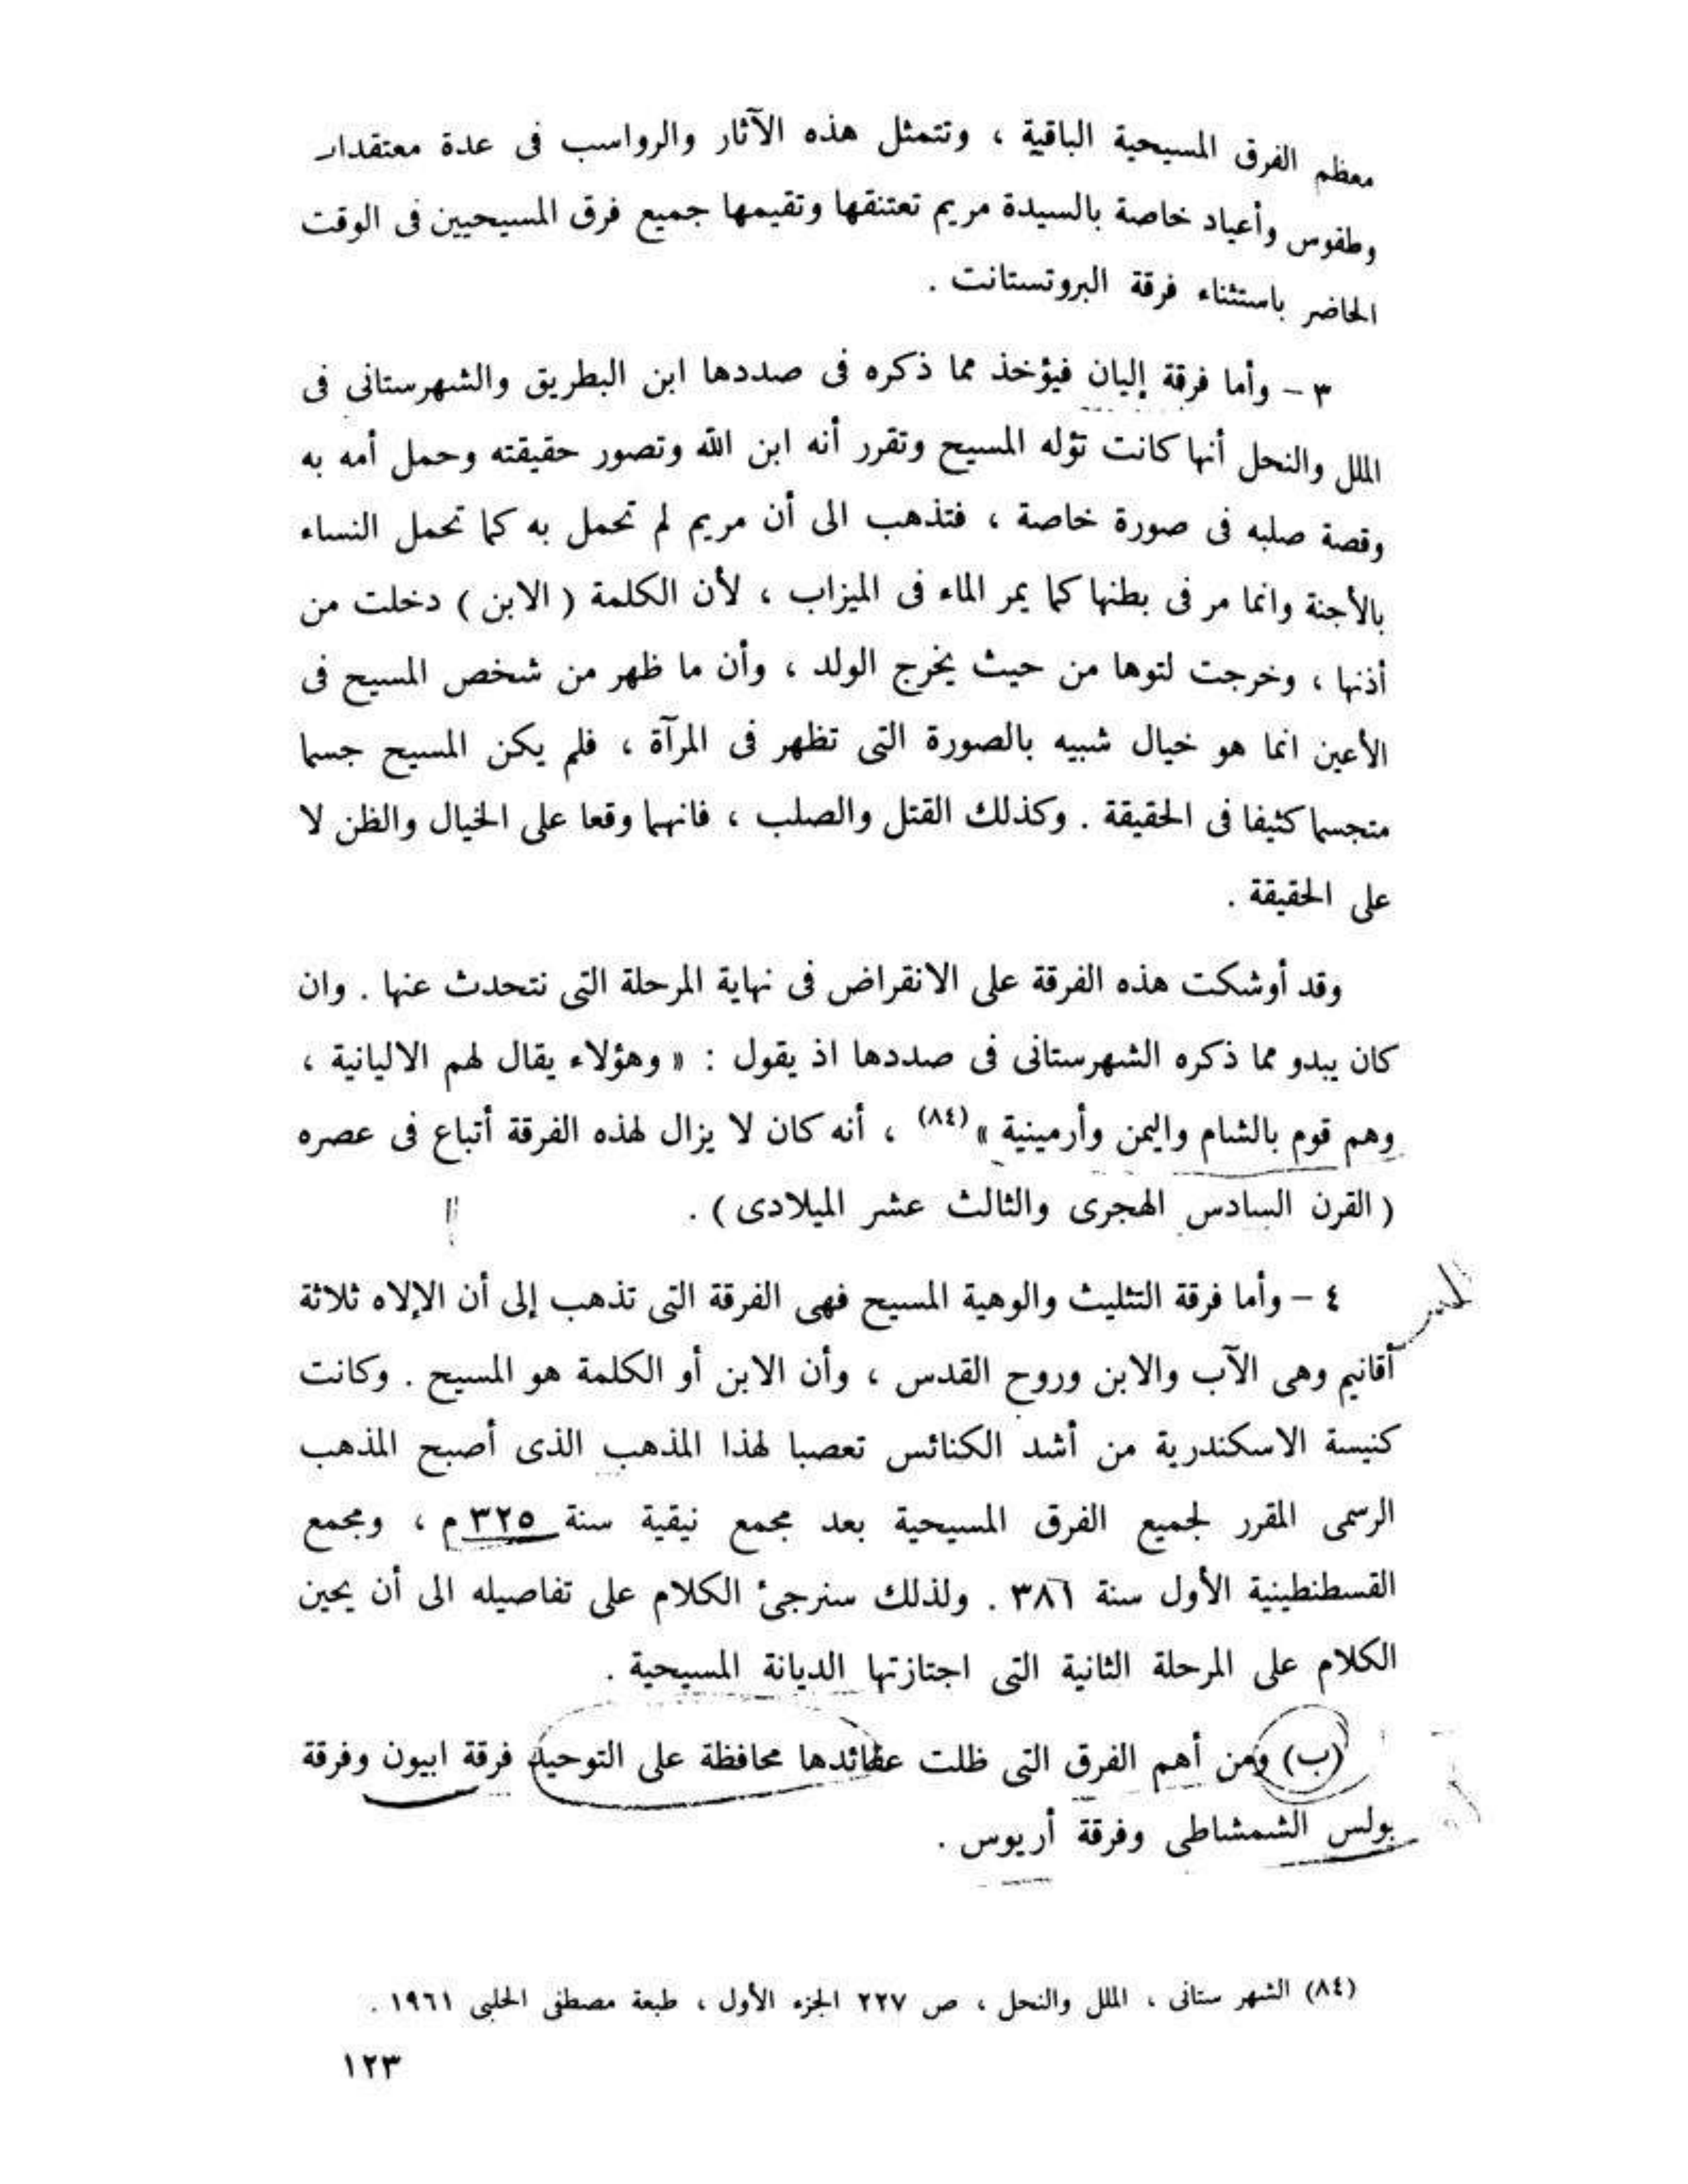 معظم الفرق المسيحية الباقية ، وتتمثل هذه الآثار والرواسب فى عدة
وطقوس وأعياد خاصة بالسيدة مريم تعتنقها وتقيمها جميع فرق المسيحيين فى الوقت
الحاضر باستثناء فرقة البروتستانت .
٣ – وأما فرقة إليان فيؤخذ مما ذكره فى صددها ابن البطريق والشهرستانى فى
الملل والنحل أنها كانت تؤله المسيح وتقرر أنه ابن الله وتصور حقيقته وحمل أمه به
وقصة صلبه فى صورة خاصة ، فتذهب الى أن مريم لم تحمل به كما تحمل النساء
بالأجنة وانما مر فى بطنها كما يمر الماء فى الميزاب ، لأن الكلمة ( الابن ) دخلت من
أذنها ، وخرجت لتوها من حيث يخرج الولد ، وأن ما ظهر من شخص المسيح فى
الأعين انما هو خيال شبيه بالصورة التى تظهر فى المرآة ، فلم يكن المسيح جسما
متجسما كثيفا فى الحقيقة . وكذلك القتل والصلب ، فانهما وقعا على الخيال والظن لا
على الحقيقة .
وقد أوشكت هذه الفرقة على الانقراض فى نهاية المرحلة التى نتحدث عنها . وان
كان يبدو مما ذكره الشهرستانى فى صددها اذ يقول : « وهؤلاء يقال لهم الاليانية ،
وهم قوم بالشام واليمن وأرمينية » (٨٤) ، أنه كان لا يزال لهذه الفرقة أتباع فى عصره
( القرن السادس الهجرى والثالث عشر الميلادى ) .
٤ – وأما فرقة التثليث والوهية المسيح فهى الفرقة التى تذهب إلى أن الإلاه ثلاثة
أقانيم وهى الآب والابن وروح القدس ، وأن الابن أو الكلمة هو المسيح . وكانت
كنيسة الاسكندرية من أشد الكنائس تعصبا لهذا المذهب الذى أصبح المذهب
الرسمى المقرر لجميع الفرق المسيحية بعد مجمع نيقية سنة ٣٢٥ م ، ومجمع
القسطنطينية الأول سنة ٣٨١ . ولذلك سنرجئ الكلام على تفاصيله الى أن يحين
الكلام على المرحلة الثانية التى اجتازتها الديانة المسيحية .
(ب) ومن أهم الفرق التى ظلت عقائدها محافظة على التوحيد فرقة ابيون وفرقة
بولس الشمشاطى وفرقة أريوس .
(٨٤) الشهر ستانى ، الملل والنحل ، ص ٢٢٧ الجزء الأول ، طبعة مصطفى الحلبى ١٩٦١ .
١٢٣